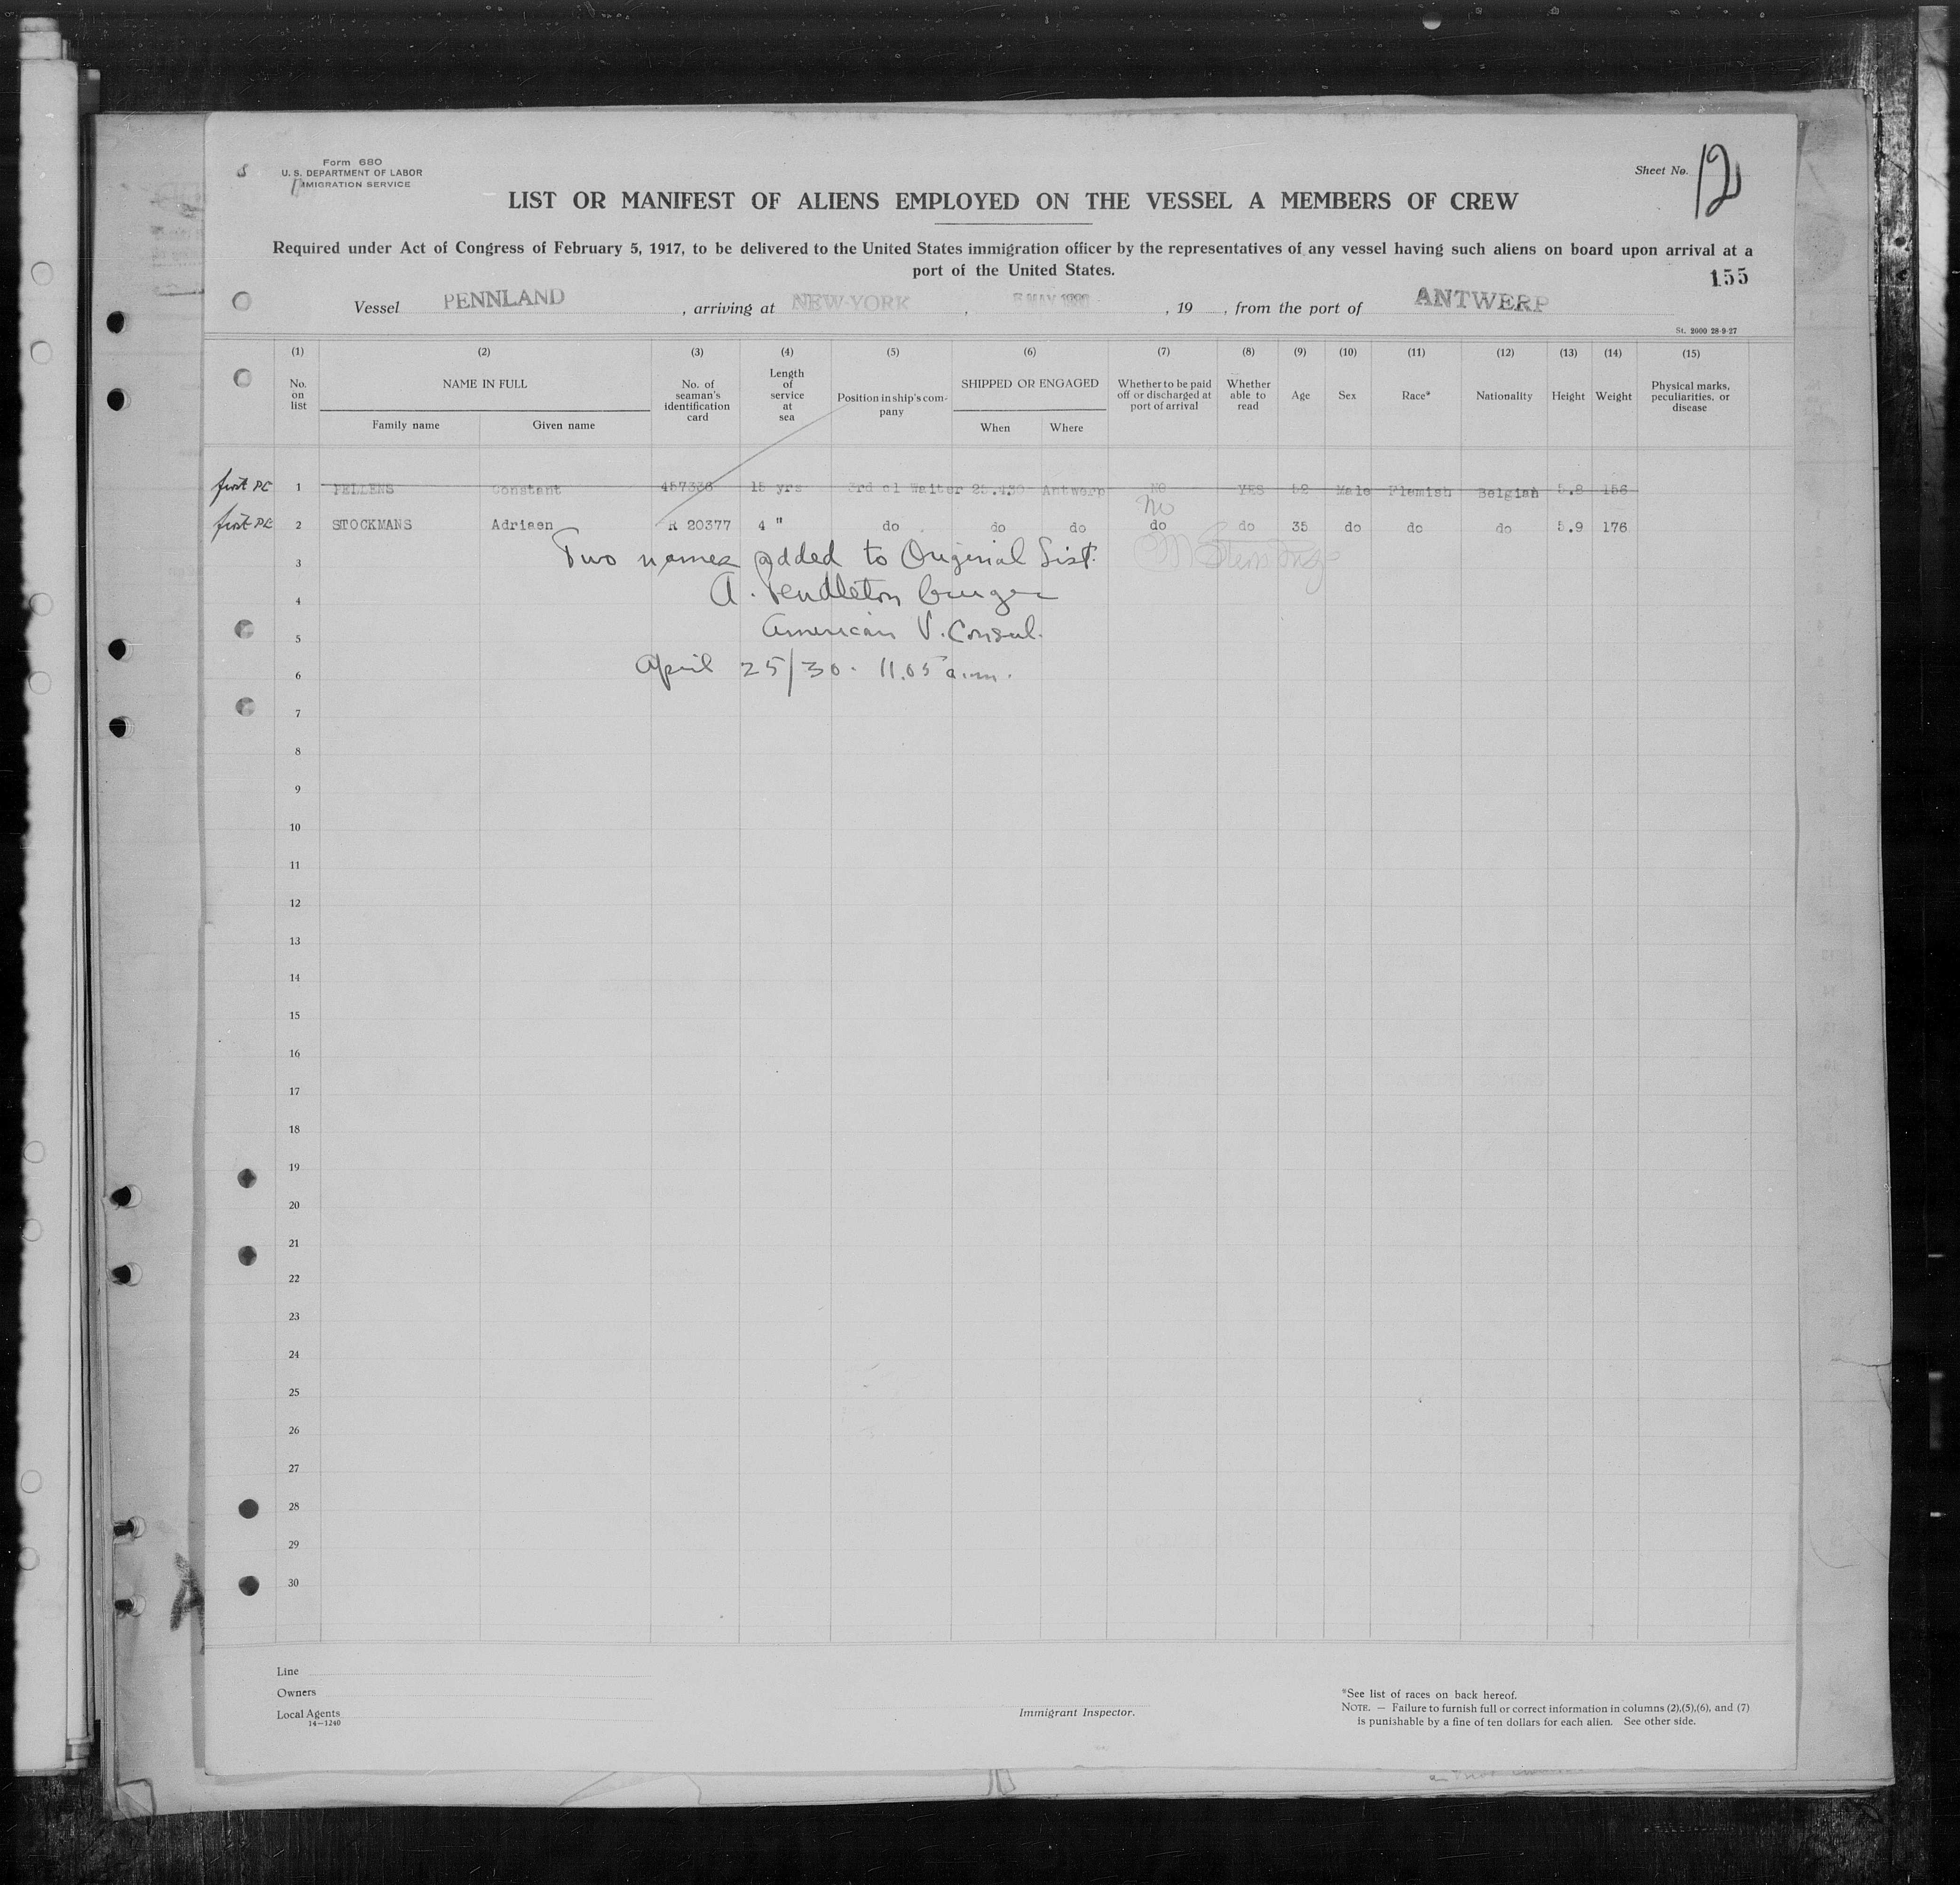 Form 680
U. S. DEPARTMENT OF LABOR
IMMIGRATION SERVICE
Sheet No. 12
LIST OR MANIFEST OF ALIENS EMPLOYED ON THE VESSEL A MEMBERS OF CREW
Required under Act of Congress of February 5, 1917, to be delivered to the United States immigration officer by the representatives of any vessel having such aliens on board upon arrival at a
port of the United States.
155
Vessel PENNLAND, arriving at NEW-YORK, MAY, 19, from the port of ANTWERP
St. 2000 28-9-27
(1) (2) (3) (4) (5) (6) (7) (8) (9) (10) (11) (12) (13) (14) (15)
No. on list
NAME IN FULL
Family name Given name
No. of seaman's identification card
Length of service at sea
Position in ship's company
SHIPPED OR ENGAGED
When Where
Whether to be paid off or discharged at port of arrival
Whether able to read
Age
Sex
Race*
Nationality
Height
Weight
Physical marks, peculiarities, or disease
first 1 FELLENS Constant 457336 15 yrs 3rd cl Waiter 25.430 Antwerp NO YES 52 Male Flemish Belgian 5.8 156
No
first 2 STOCKMANS Adriaen R 20377 4 " do do do do do 35 do do do 5.9 176
3 Two names added to Original List.
4 A. Pendleton
5 American V. Consul.
6 April 25/30. 11.05 a.m.
7
8
9
10
11
12
13
14
15
16
17
18
19
20
21
22
23
24
25
26
27
28
29
30
Line
Owners
Local Agents
14-1240
Immigrant Inspector.
*See list of races on back hereof.
NOTE. — Failure to furnish full or correct information in columns (2),(5),(6), and (7)
is punishable by a fine of ten dollars for each alien. See other side.